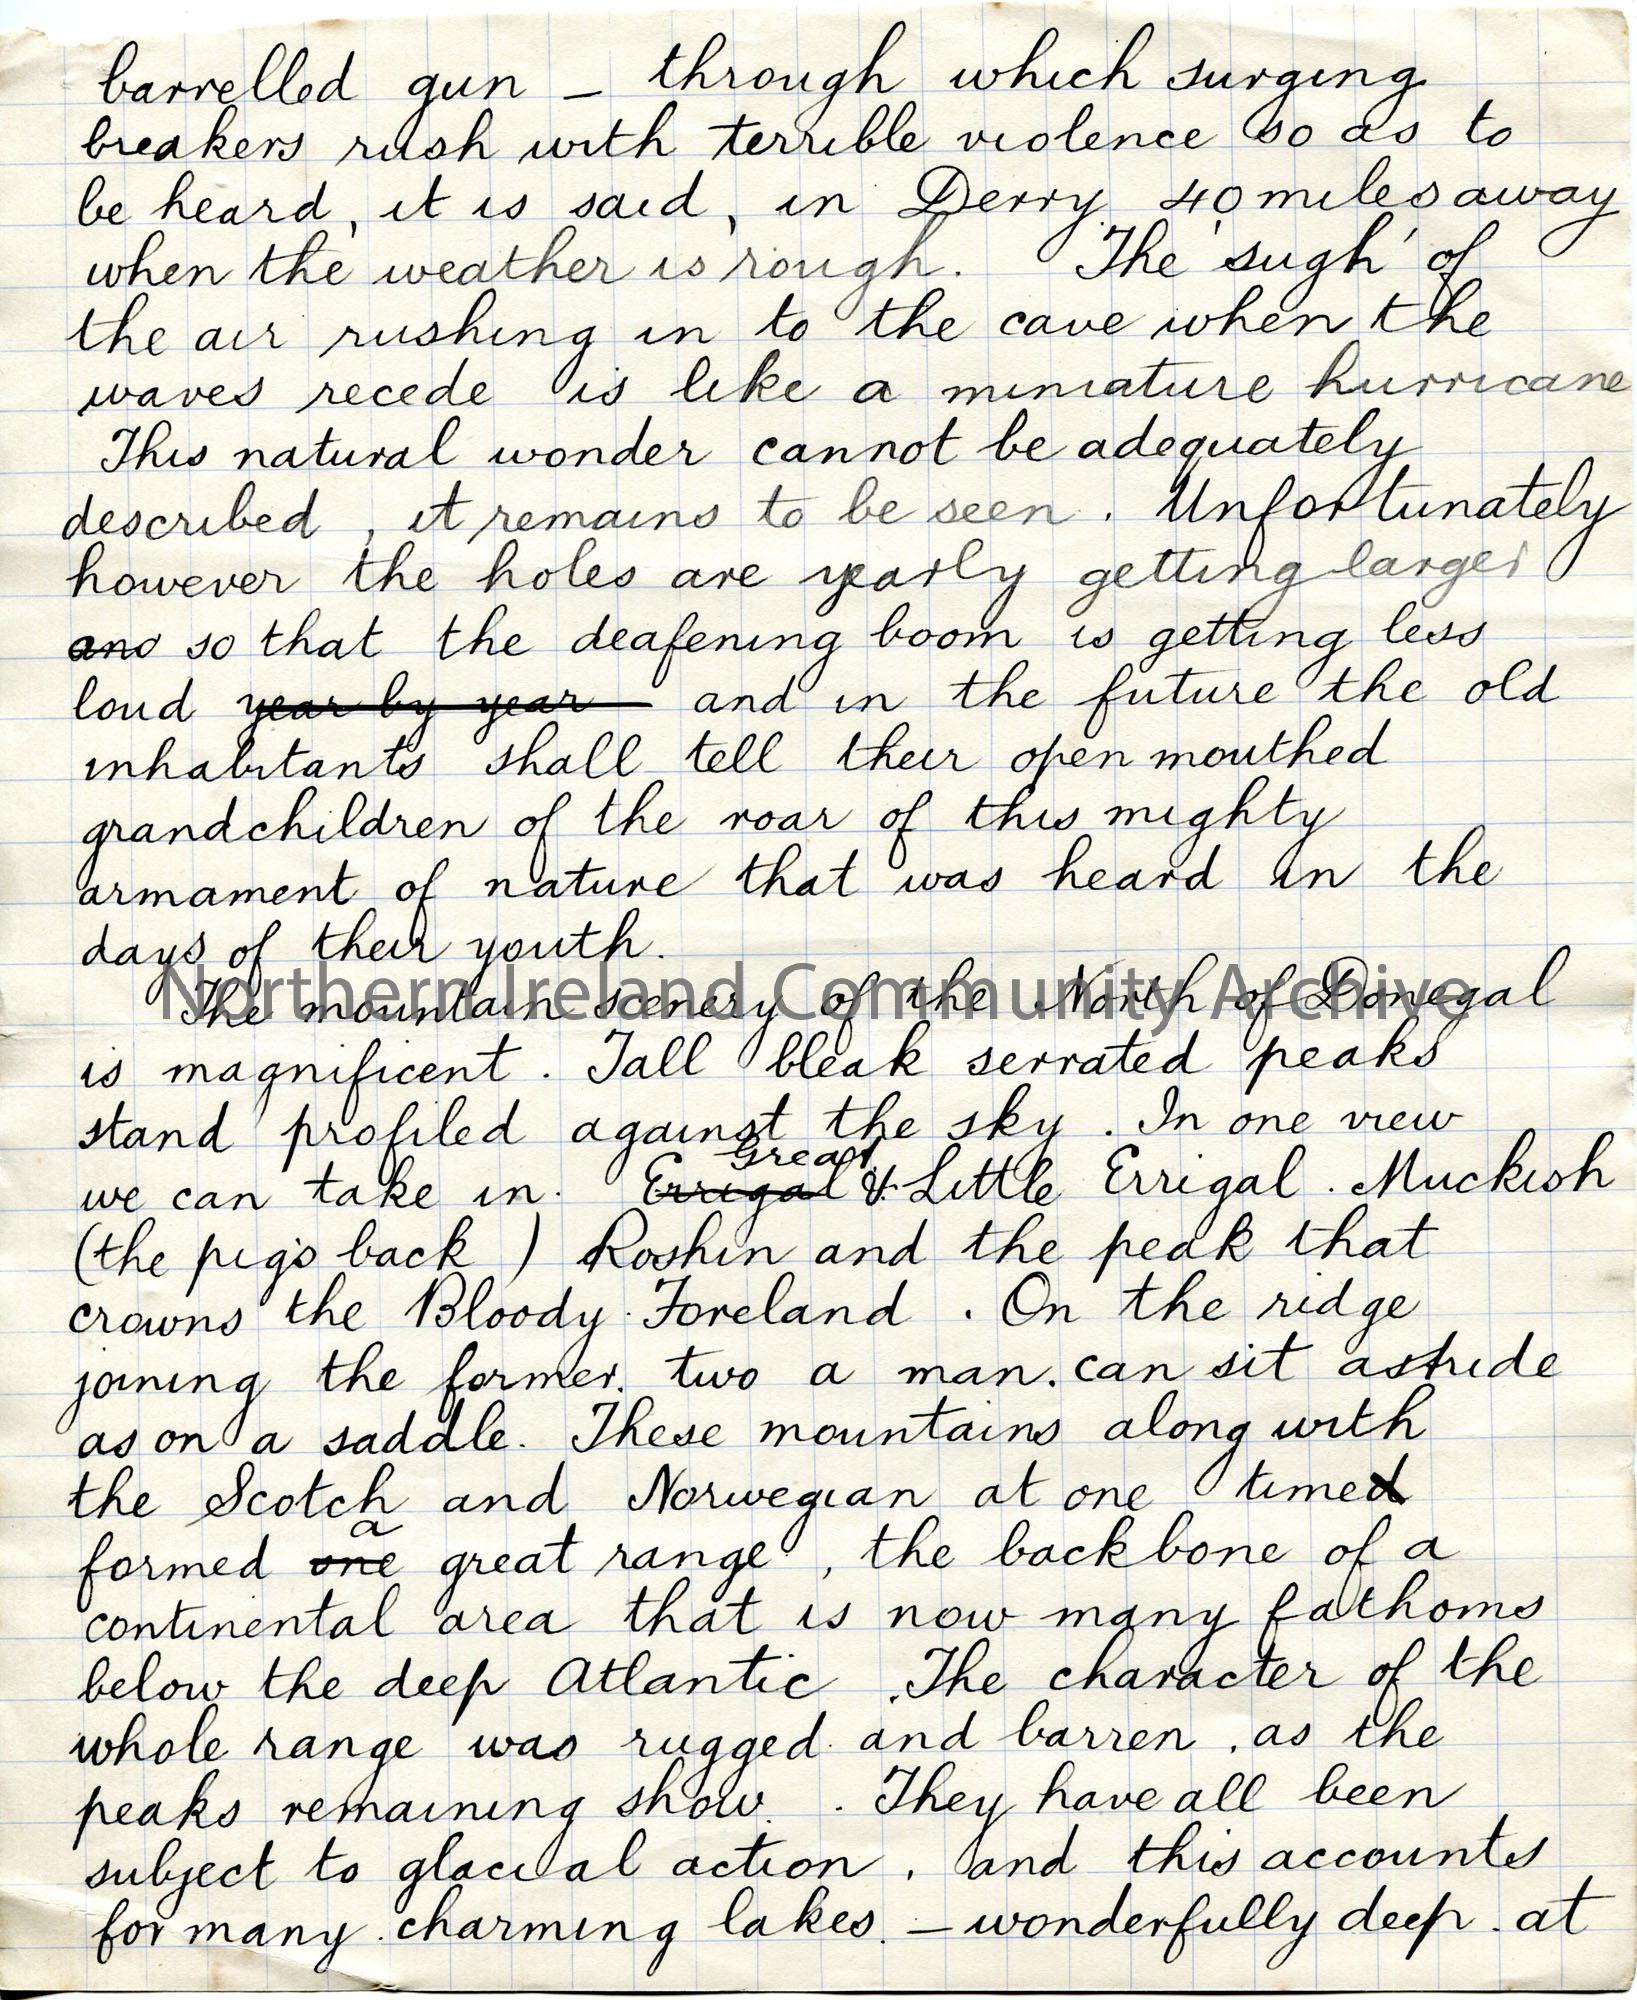 barrelled gun – through which surging
breakers rush with terrible violence so as to
be heard, it is said, in Derry 40 miles away
when the weather is rough. The 'sugh' of
the air rushing in to the cave when the
waves recede is like a miniature hurricane
This natural wonder cannot be adequately
described, it remains to be seen. Unfortunately
however the holes are yearly getting larger
and so that the deafening boom is getting less
loud year by year and in the future the old
inhabitants shall tell their open mouthed
grandchildren of the roar of this mighty
armament of nature that was heard in the
days of their youth.
Northern Ireland Community Archive
The mountain scenery of the North of Donegal
is magnificent. Tall bleak serrated peaks
stand profiled against the sky. In one view
Great
we can take in. Errigal & Little Errigal. Muckish
(the pig's back) Roshin and the peak that
crowns the Bloody Foreland. On the ridge
joining the former. two a man. can sit astride
as on a saddle. These mountains along with
the Scotch and Norwegian at one timed
a
formed one great range, the backbone of a
continental area that is now many fathoms
below the deep Atlantic. The character of the
whole range was rugged and barren, as the
peaks remaining show. They have all been
subject to glacial action, and this accounts
for many charming lakes. – wonderfully deep at